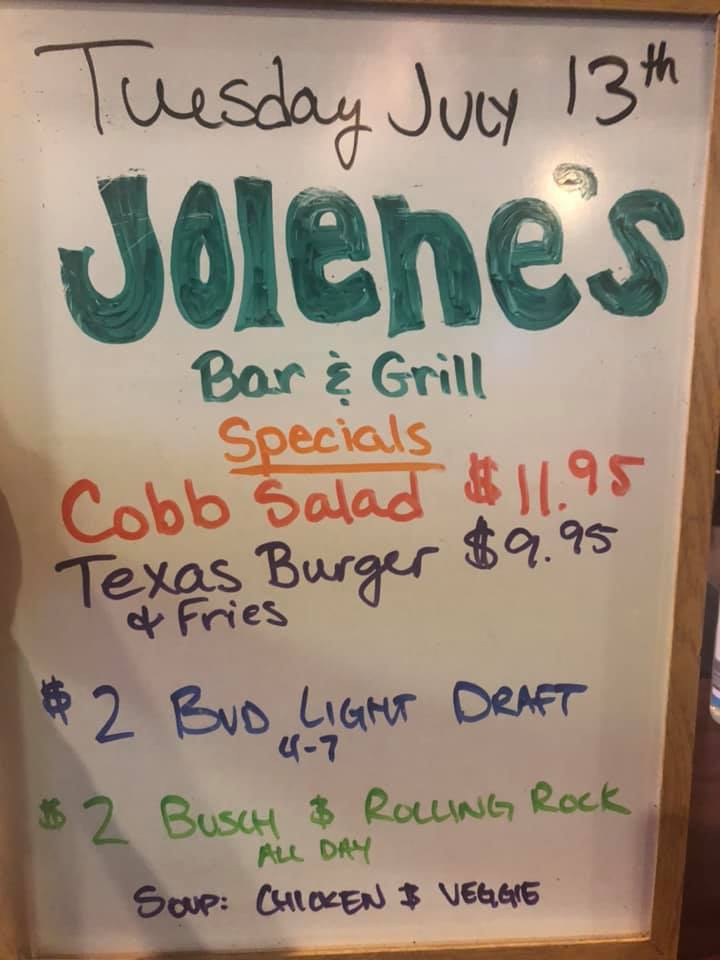 Tuesday July 13th
Jolene's
Bar & Grill
Specials
Cobb Salad $11.95
Texas Burger $9.95
& Fries
$2 Bud Light Draft
4-7
$2 Busch & Rolling Rock
All Day
Soup: Chicken & Veggie